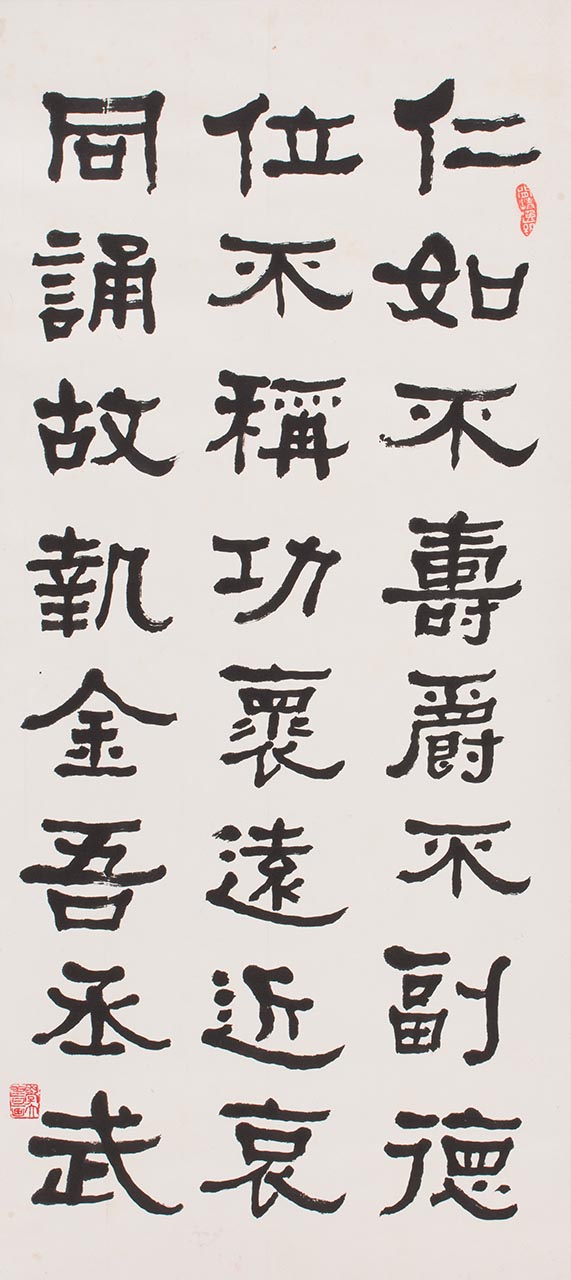 仁如不壽爵不副德
位不稱功褱遠近哀
同誦故執金吾丞武